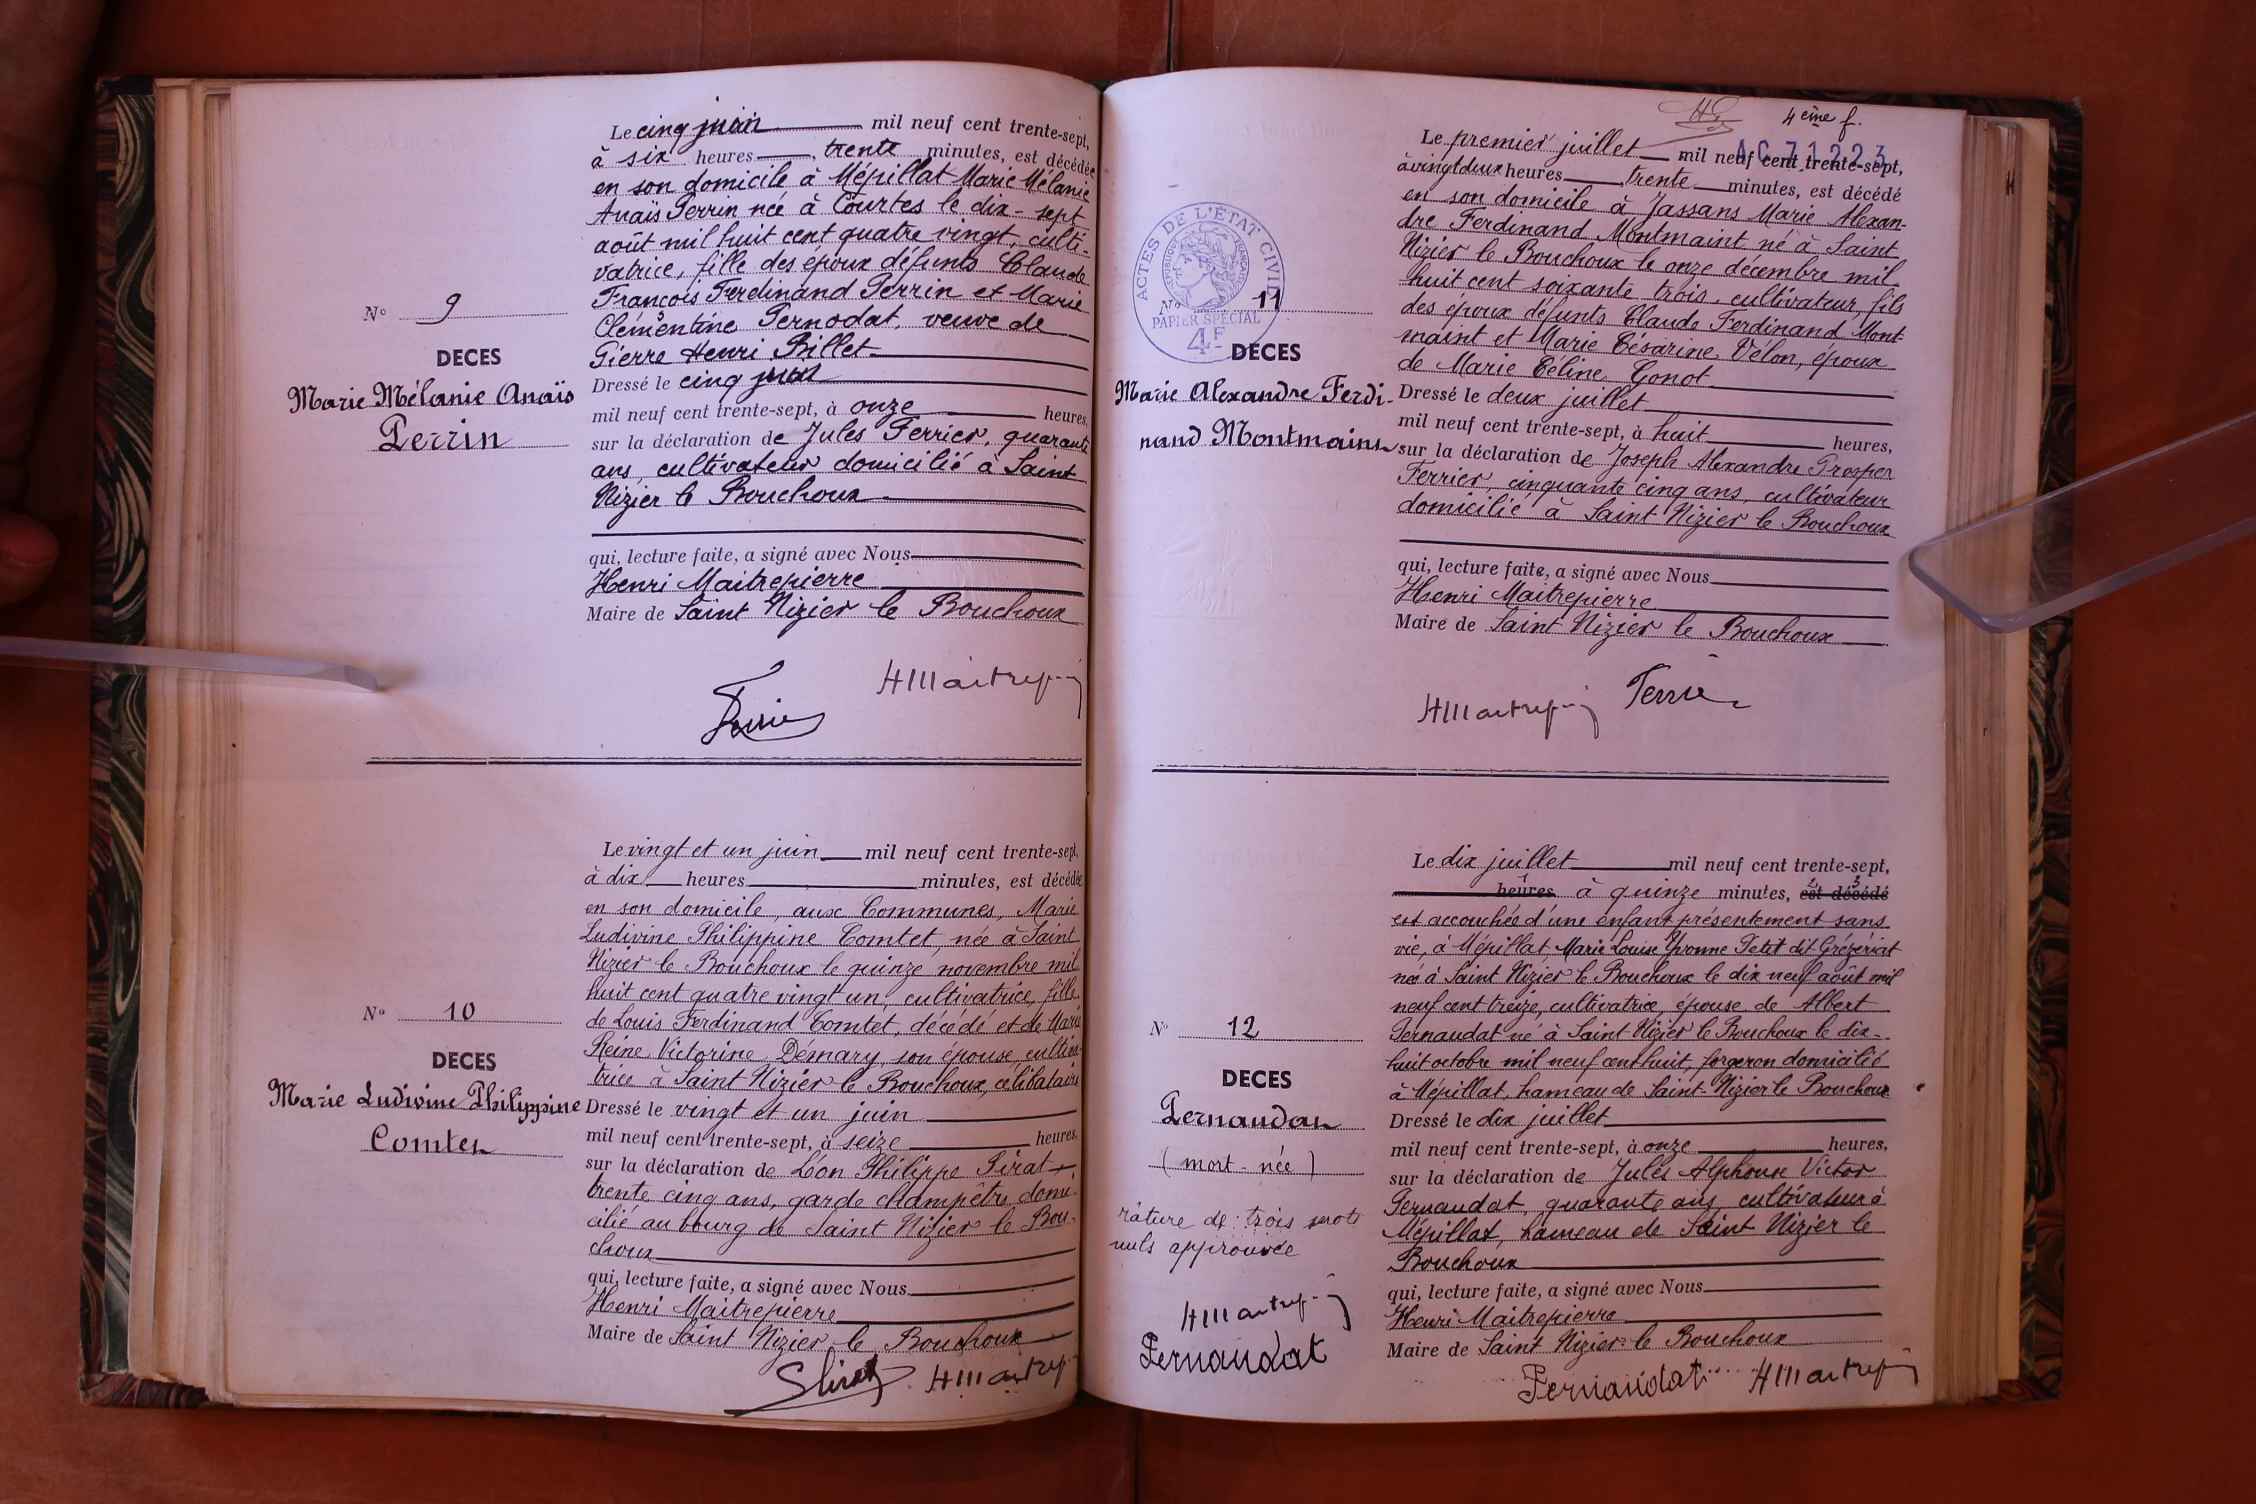 Le cinq juin mil neuf cent trente-sept,
à six heures, trente minutes, est décédée
en son domicile à Mépillat Marie Mélanie
Anaïs Perrin née à Courtes le dix-sept
août mil huit cent quatre vingt, culti-
vatrice, fille des époux défunts Claude
François Ferdinand Perrin et Marie
Clémentine Pernodat, veuve de
Pierre Henri Billet
Nº 9
DECES
Marie Mélanie Anaïs
Perrin
Dressé le cinq juin
mil neuf cent trente-sept, à onze heures,
sur la déclaration de Jules Ferrier, quarante
ans, cultivateur domicilié à Saint
Nizier le Bouchoux
qui, lecture faite, a signé avec Nous
Henri Maitrepierre
Maire de Saint Nizier le Bouchoux
Le vingt et un juin mil neuf cent trente-sept,
à dix heures minutes, est décédée
en son domicile, aux Communes, Marie
Ludivine Philippine Comtet, née à Saint
Nizier le Bouchoux le quinze novembre mil
huit cent quatre vingt un, cultivatrice, fille
de Louis Ferdinand Comtet, décédé et de Marie
Reine Victorine Démary, son épouse, cultiva-
trice à Saint Nizier le Bouchoux, célibataire
Nº 10
DECES
Marie Ludivine Philippine
Comtet
Dressé le vingt et un juin
mil neuf cent trente-sept, à seize heures,
sur la déclaration de Léon Philippe Pirat
trente cinq ans, garde champêtre domi-
cilié au bourg de Saint Nizier le Bou-
choux
qui, lecture faite, a signé avec Nous
Henri Maitrepierre
Maire de Saint Nizier le Bouchoux
4ème f.
AC 71223
Le premier juillet mil neuf cent trente-sept,
à vingt deux heures, trente minutes, est décédé
en son domicile à Jassans Marie Alexan-
dre Ferdinand Montmaint né à Saint
Nizier le Bouchoux le onze décembre mil
huit cent soixante trois, cultivateur, fils
des époux défunts Claude Ferdinand Mont-
maint et Marie Césarine Vélon, époux
de Marie Céline Gonot
ACTES DE L'ÉTAT CIVIL
RÉPUBLIQUE FRANÇAISE
PAPIER SPÉCIAL
4F
Nº 11
DECES
Marie Alexandre Ferdi-
nand Montmaint
Dressé le deux juillet
mil neuf cent trente-sept, à huit heures,
sur la déclaration de Joseph Alexandre Prosper
Ferrier, cinquante cinq ans, cultivateur
domicilié à Saint Nizier le Bouchoux
qui, lecture faite, a signé avec Nous
Henri Maitrepierre
Maire de Saint Nizier le Bouchoux
Le dix juillet mil neuf cent trente-sept,
heures à quinze minutes, est décédé
est accouchée d'une enfant présentement sans
vie, à Mépillat, Marie Louise Yvonne Petit dit Grézériat
née à Saint Nizier le Bouchoux le dix neuf août mil
neuf cent treize, cultivatrice, épouse de Albert
Pernaudat né à Saint Nizier le Bouchoux le dix-
huit octobre mil neuf cent huit, forgeron domicilié
à Mépillat, hameau de Saint-Nizier le Bouchoux
Nº 12
DECES
Pernaudat
(mort-née)
Dressé le dix juillet
mil neuf cent trente-sept, à onze heures,
sur la déclaration de Jules Alphonse Victor
Pernaudat, quarante ans, cultivateur à
Mépillat, hameau de Saint Nizier le
Bouchoux
qui, lecture faite, a signé avec Nous
Henri Maitrepierre
Maire de Saint Nizier le Bouchoux
râture de trois mots
nuls approuvée
Pernaudat
Pernaudat